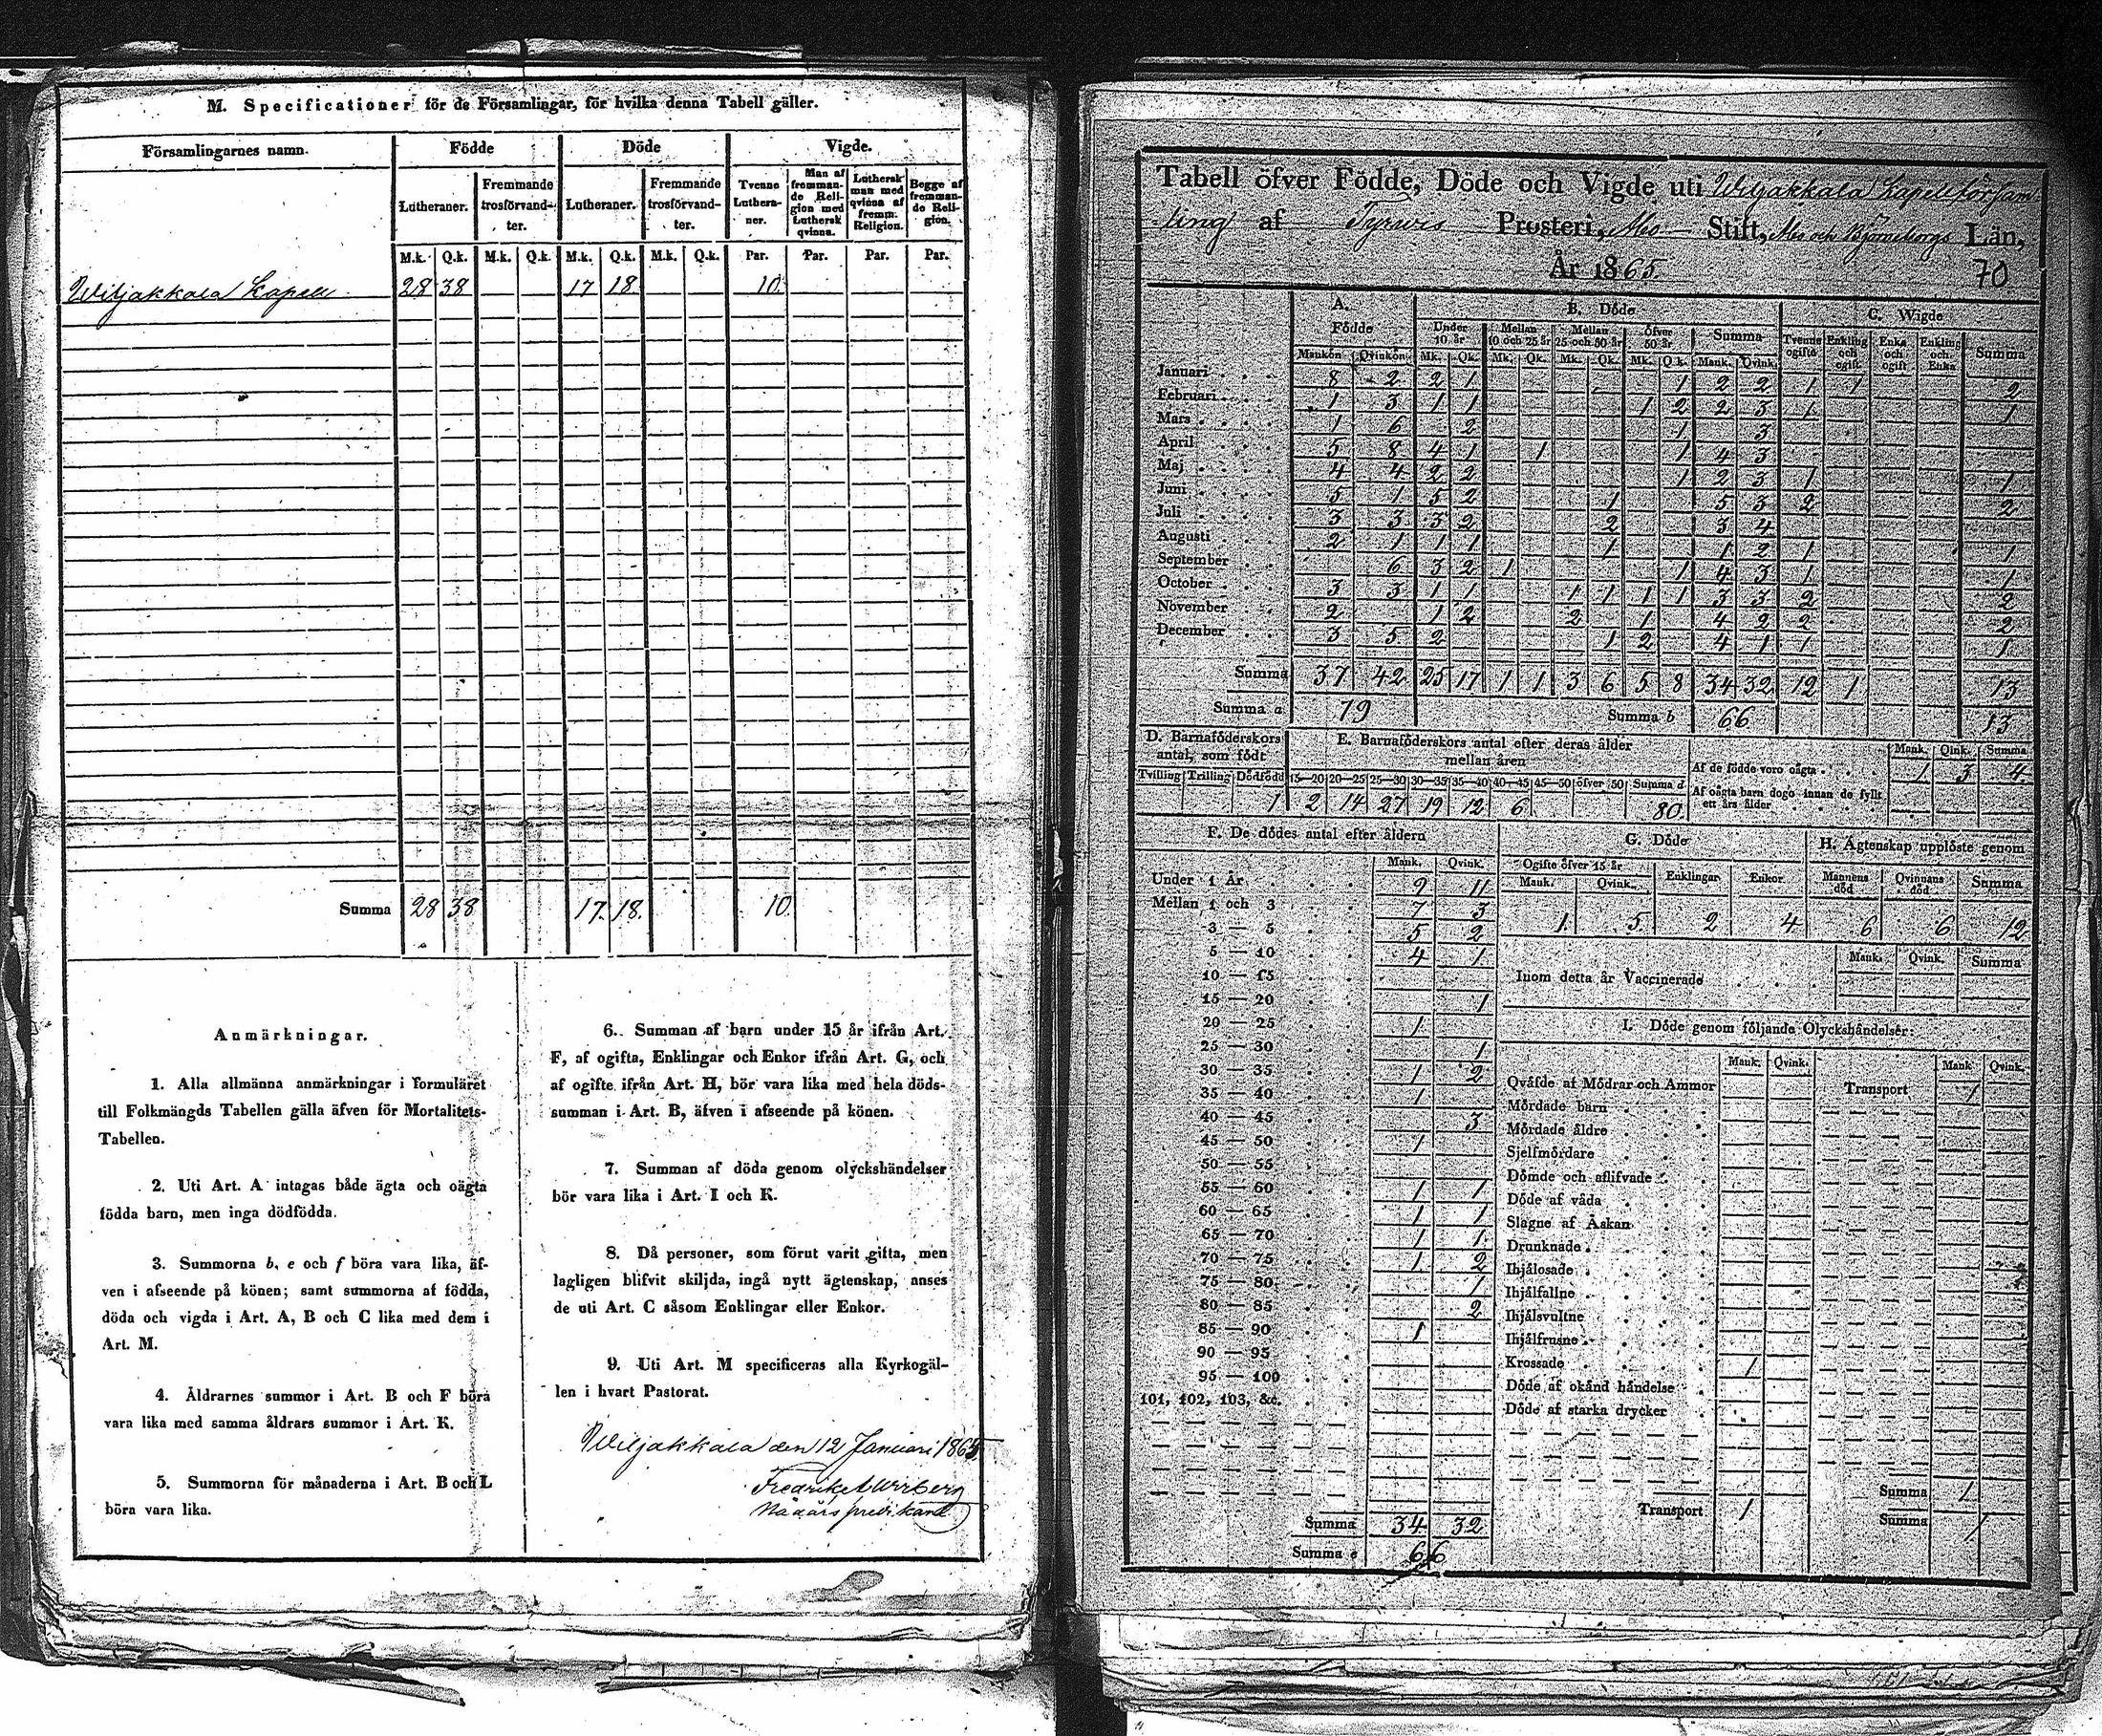 M. Specificationer för de Församlingar, för hvilka denna Tabell gäller.
Församlingarnes namn. Födde Döde Vigde.
Lutheraner. Fremmande trosförvandter. Lutheraner. Fremmande trosförvandter. Tvenne Lutheraner. Man af fremmande Religion med Luthersk qvinna. Luthersk man med qvinna af fremm. Religion. Begge af fremmande Religion.
M.k. Q.k. M.k. Q.k. M.k. Q.k. M.k. Q.k. Par. Par. Par. Par.
Wiljakkala Kapell 28 38 17 18 10
Summa 28 38 17. 18. 10
Anmärkningar.
1. Alla allmänna anmärkningar i formuläret
till Folkmängds Tabellen gälla äfven för Mortalitets-
Tabellen.
2. Uti Art. A intagas både ägta och oägta
födda barn, men inga dödfödda.
3. Summorna b, e och f böra vara lika, äf-
ven i afseende på könen; samt summorna af födda,
döda och vigda i Art. A, B och C lika med dem i
Art. M.
4. Åldrarnes summor i Art. B och F böra
vara lika med samma åldrars summor i Art. K.
5. Summorna för månaderna i Art. B och L
böra vara lika.
6. Summan af barn under 15 år ifrån Art.
F, af ogifta, Enklingar och Enkor ifrån Art. G, och
af ogifte ifrån Art. H, bör vara lika med hela döds-
summan i Art. B, äfven i afseende på könen.
7. Summan af döda genom olyckshändelser
bör vara lika i Art. I och K.
8. Då personer, som förut varit gifta, men
lagligen blifvit skiljda, ingå nytt ägtenskap, anses
de uti Art. C såsom Enklingar eller Enkor.
9. Uti Art. M specificeras alla Kyrkogäl-
len i hvart Pastorat.
Wiljakkala den 12 Januari 1865
Nådårspredikant
Tabell öfver Födde, Döde och Vigde uti Wiljakkala Kapellförsam-
ling af Tyrvis Prosteri, Åbo Stift, Åbo och Björneborgs Län,
År 1865.
70
A. Födde B. Döde C. Wigde
Under 10 år Mellan 10 och 25 år Mellan 25 och 50 år Öfver 50 år Summa Tvenne ogifte Enkling och ogift Enka och ogift Enkling och Enka Summa
Mankön Qvinkön Mk. Qk. Mk. Qk. Mk. Qk. Mk. Qk. Mank. Qvink.
Januari 8 2 2 1 1 2 2 1 1 2
Februari 1 3 1 1 1 2 2 3 1 1
Mars 1 6 2 1 3
April 5 8 4 1 1 1 4 3
Maj 4 4 2 2 1 2 3 1 1
Juni 5 1 5 2 1 5 3 2 2
Juli 3 3 3 2 2 3 4
Augusti 2 1 1 1 1 1 2 1 1
September 6 3 2 1 1 4 3 1 1
October 3 3 1 1 1 1 1 1 3 3 2 2
November 2 1 2 2 1 4 2 2 2
December 3 5 2 1 2 4 1 1 1
Summa 37 42 25 17 1 1 3 6 5 8 34 32 12 1 13
Summa a 79 Summa b 66 13
D. Barnaföderskors antal, som födt
Tvilling Trilling Dödfödd
1
E. Barnaföderskors antal efter deras ålder mellan åren
15—20 20—25 25—30 30—35 35—40 40—45 45—50 öfver 50 Summa d
2 14 27 19 12 6 80
Mank. Qink. Summa
Af de födde voro oägta 1 3 4
Af oägta barn dogo innan de fyllt
ett års ålder
F. De dödes antal efter åldern
Mank. Qvink.
Under 1 År 9 11
Mellan 1 och 3 7 3
3 — 5 5 2
5 — 10 4 1
10 — 15
15 — 20 1
20 — 25 1
25 — 30 1
30 — 35 1 2
35 — 40 1
40 — 45 3
45 — 50 1
50 — 55
55 — 60 1 1
60 — 65 1 1
65 — 70 1 1
70 — 75 1 2
75 — 80 1
80 — 85 2
85 — 90 1
90 — 95
95 — 100
101, 102, 103, &c.
Summa 34 32
Summa e 66
G. Döde
Ogifte öfver 15 år Enklingar Enkor
Mank. Qvink.
1 5 2 4
H. Ägtenskap upplöste genom
Mannens död Qvinnans död Summa
6 6 12
Mank. Qvink. Summa
Inom detta år Vaccinerade
I. Döde genom följande Olyckshändelser:
Mank. Qvink. Mank Qvink.
Qväfde af Mödrar och Ammor Transport 1
Mördade barn
Mördade äldre
Sjelfmördare
Dömde och aflifvade
Döde af våda
Slagne af Åskan
Drunknade
Ihjälosade
Ihjälfallne
Ihjälsvultne
Ihjälfrusne
Krossade 1
Döde af okänd händelse
Döde af starka drycker
Summa 1
Transport 1 Summa 1